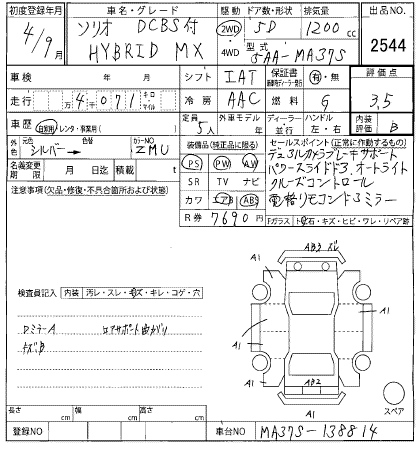 初度登録年月 車名・グレード 駆動 ドア数・形状 排気量 出品NO.
4/9月 ソリオ DCBS付 2WD 5D 1200cc 2544
HYBRID MX 4WD 型式 5AA-MA37S
車検 シフト IAT 保証書 有・無 評価点
走行 万4千071 キロ マイル 冷房 AAC 燃料 G 3.5
車歴 自家用・レンタ・事業用( ) 定員 5人 外車モデル 年 ディーラー 並行 ハンドル 左・右 内装評価 B
外色 元色 シルバー 色替 カラーNO ZMU
装備品(純正品に限る) セールスポイント(正常に作動するもの)
名義変更期限 月 日迄 積載 t
PS PW AW
デュアルカメラブレーキサポート
注意事項(欠品・修復・不具合箇所および状態)
SR TV ナビ
パワースライドドア, オートライト
カワ エアB ABS
クルーズコントロール
R券 7690円
電格リモコンドアミラー
Fガラス トビ石・キズ・ヒビ・ワレ・リペア跡
検査員記入 内装 汚レ・スレ・キズ・キレ・コゲ・穴
DミラーA コアサポート曲がり
キズB
AB3 ズレ
A1
A1
A1
A1
A1
AB2
A1
スペア
長さ cm 幅 cm 高さ cm
登録NO 車台NO MA37S-138814